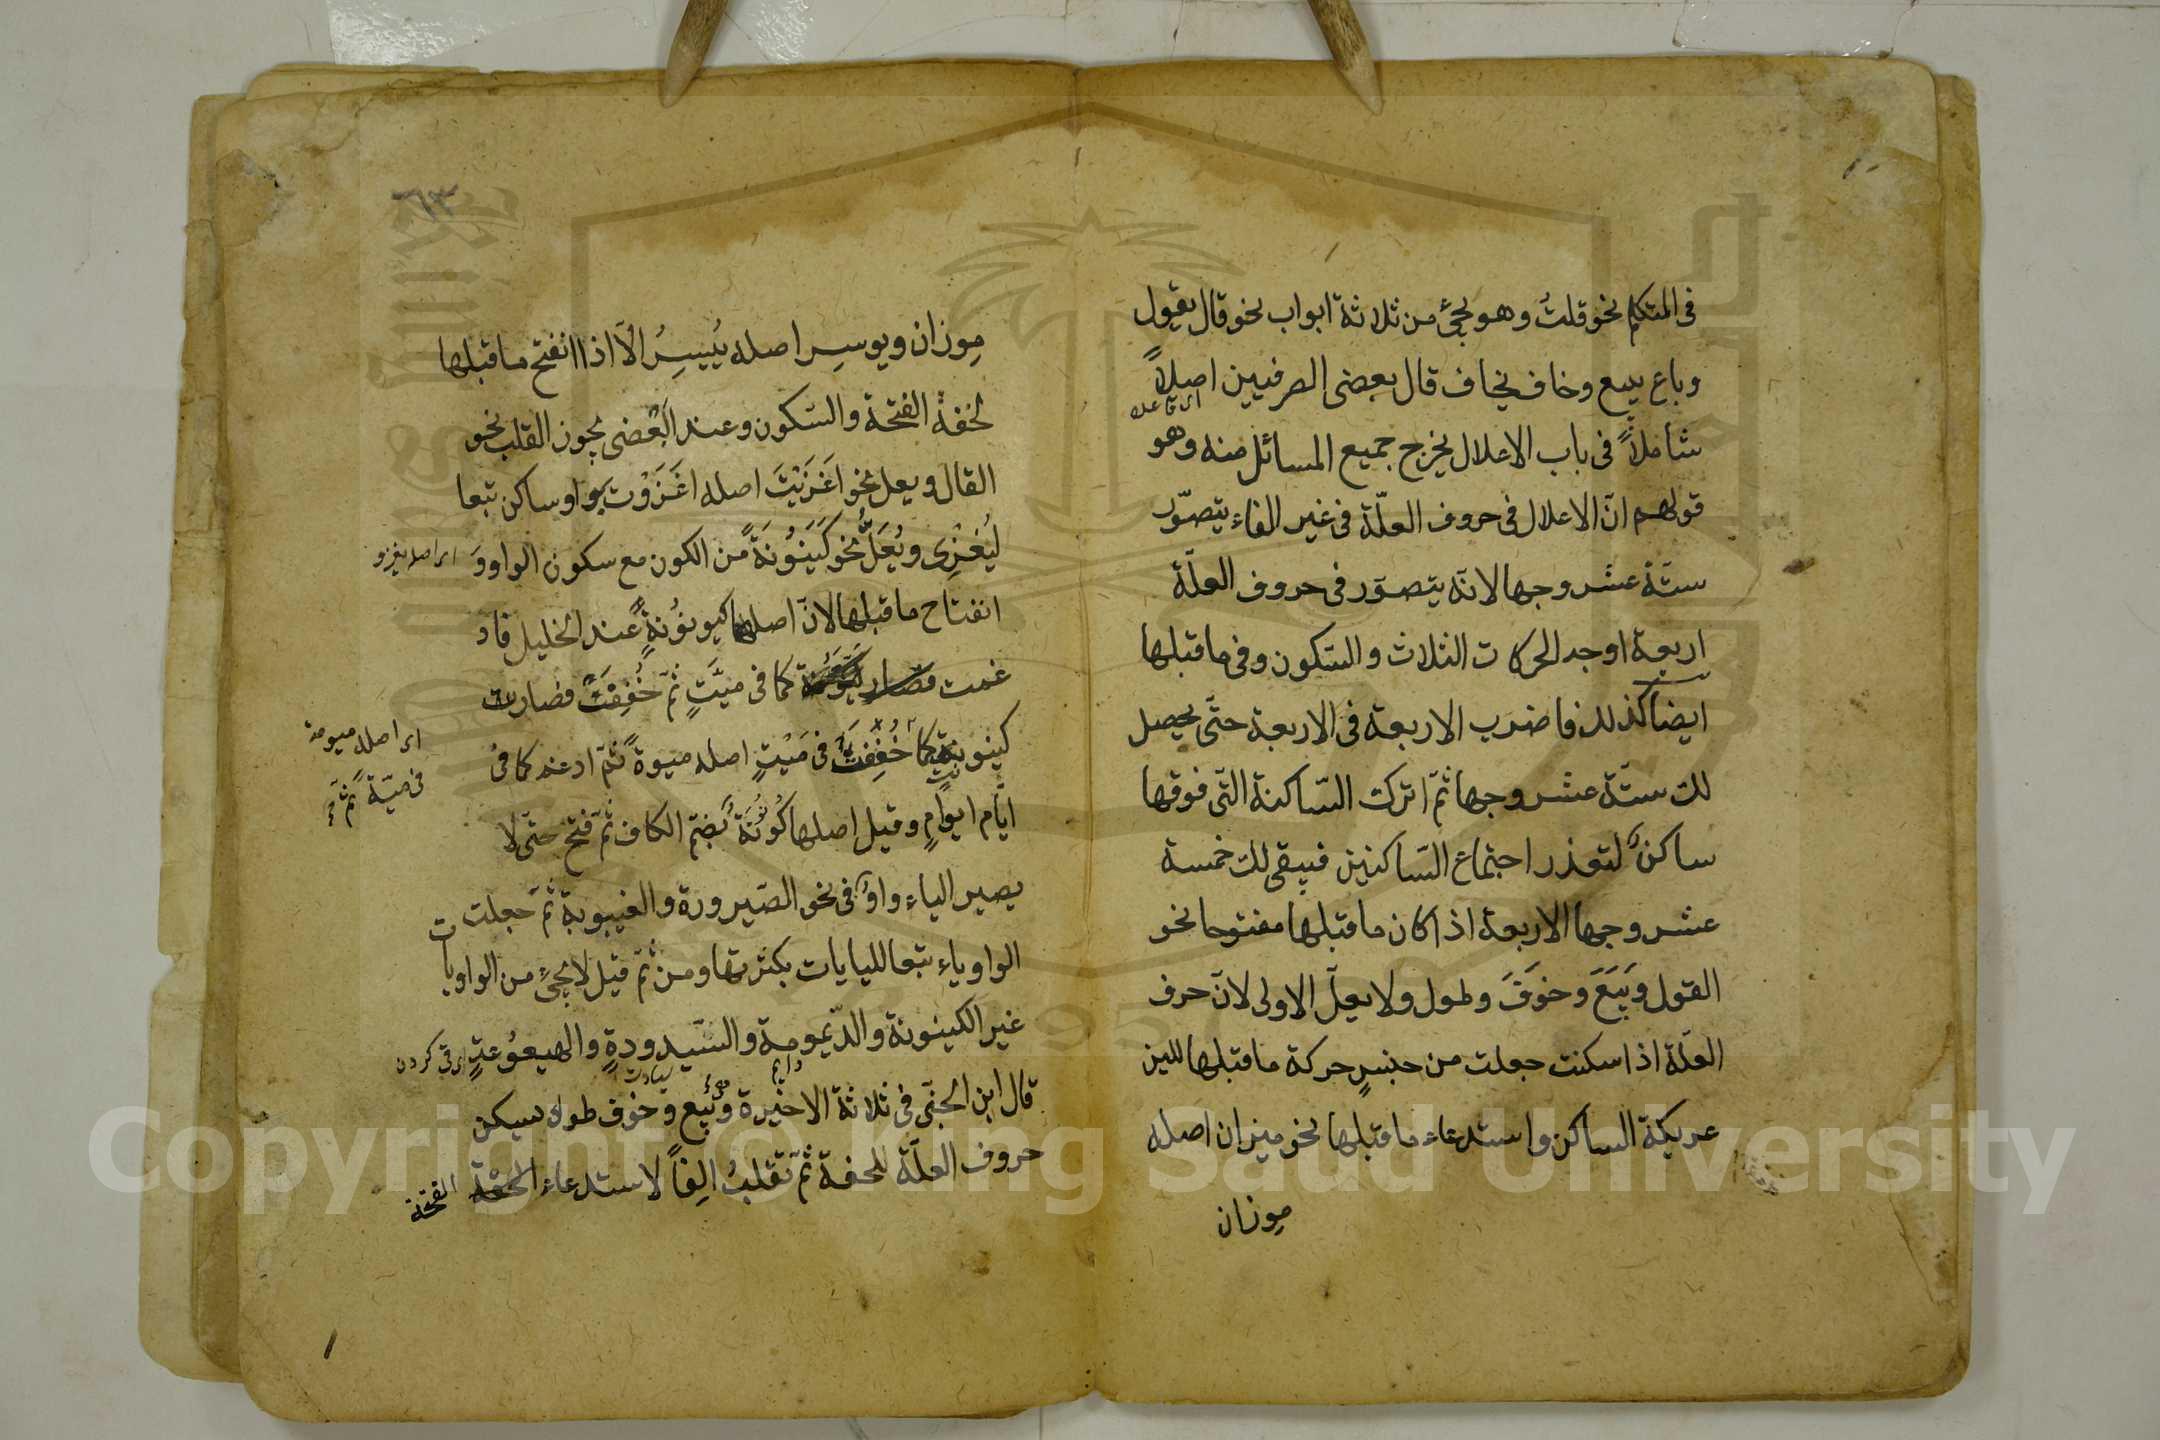 فى المتكلم نحو قلتُ وهو يجئ من ثلاثة ابواب نحو قال يقول
وباع يبيع وخاف يخاف قال بعض الصرفيين اصلاً
اى قاعدة
شاملاً فى باب الاعلال يخرج جميع المسائل منه وهو
قولهم انّ الاعلال فى حروف العلّة فى غير الفاء يتصوّر
ستّة عشر وجها لانّه يتصوّر فى حروف العلّة
اربعة اوجه الحركات الثلاث والسّكون وفى ما قبلها
ايضا كذلك فاضرب الاربعة فى الاربعة حتّى يحصل
لك ستّة عشر وجها ثمّ اترك السّاكنة التّى فوقها
ساكنٌ لتعذر اجتماع السّاكنين فيبقى لك خمسة
عشر وجها الاربعة اذا كان ما قبلها مفتوحا نحو
القول وبَيَعَ وخوَفَ وطول ولا يعلّ الاولى لانّ حرف
العلّة اذا سكنت جعلت من جنسِ حركة ما قبلها للين
عريكة الساكن واستدعاء ما قبلها نحو ميزان اصله
موزان
٦٣
مِوزان ويوسِر اصله يُيسِرُ الّا اذا انفتح ما قبلها
لخفة الفتحة والسّكون وعند البَعْضى يجوز القلب نحو
القال ويعل نحو اَغَزَيْتَ اصله اغَزَوْت بواو ساكن تبعا
ليُغْزِى ويُعَلُّ نحو كَيَنَوُنَةً من الكون مع سكون الواو وَ
اى اصله يغزو
انفتاح ما قبلها لانّ اصلها كيونوُنةٍ عند الخليل فاد
غمت فصار كما فى ميّتٍ ثمّ خُفِفَتَ فصارت
كينونة كما خُفِّفَتَ فى مَيْتٍ اصله ميوة ثمّ ادغد كما فى
اى اصله ميوتة
فى ميّة ثم
ايّام ايوامٍ وقيل اصلها كُونُنَةً بضمّ الكاف ثمّ فتح حتّى لا
يصير الياء واوً فى نحو الصّيرورة والغيبوبة ثمّ جعلت
الواو ياء تبعا لليايات بكثرتها ومن ثمّ قيل لا يجئ من الواويات
غير الكينونة والدّيمومة والسّيدودةِ والهيعوُعةِ
قال ابن الجنّى فى ثلاثة الاخيرة وبَيَع وخوف طول سيكن
حروف العلّة للخفة ثمّ تقلبُ الِفاً لاستدعاء الفتحة
Copyright © King Saud University